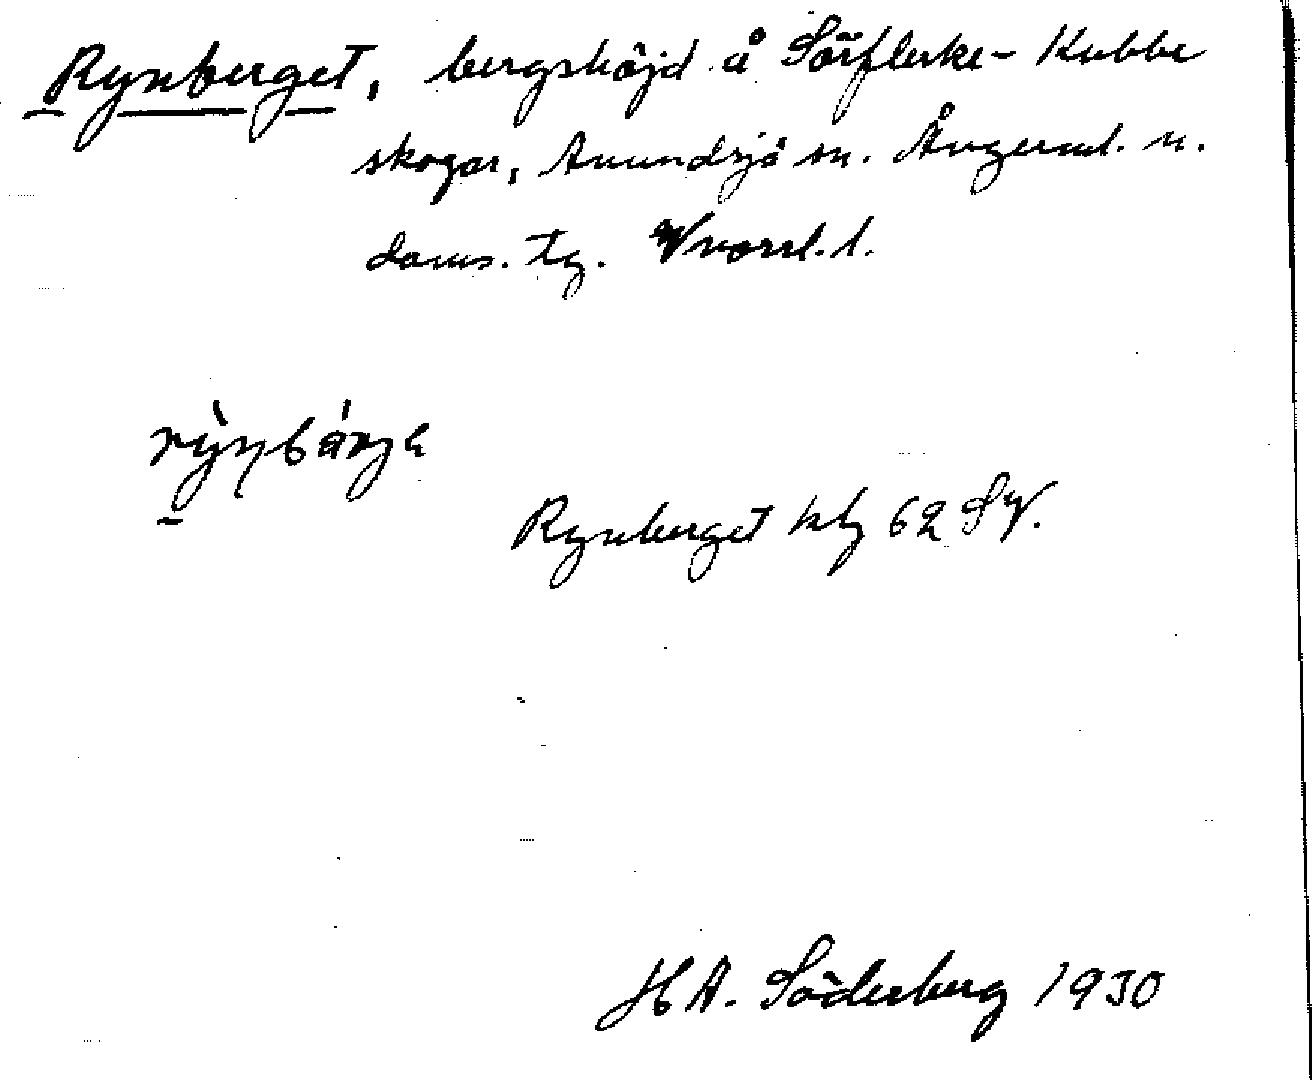 Rynberget, bergshöjd å Sörflerke-Kubbe
skogar, Anundsjö sn. Ångerml. n.
doms. tg. Vnorrl. l.
Rynberget kbl 62 SV.
H A. Söderberg 1930